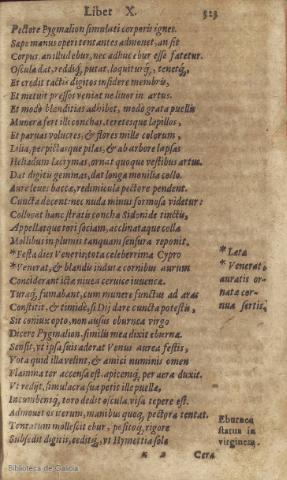 Liber X. 323
Pectore Pygmalion simulati corporis ignes.
Sæpe manus operi tentantes admouet, an sit
Corpus, an illud ebur, nec adhuc ebur esse fatetur.
Oscula dat, reddiq́; putat, loquiturq́; tenetq́;
Et credit tactis digitos insidere membris,
Et metuit pressos veniat ne liuor in artus.
Et modo blanditias adhibet, modo grata puellis
Munera fert illi conchas, teretesque lapillos,
Et paruas volucres, & flores mille colorum,
Lilia, pictasque pilas, & ab arbore lapsas
Heliadum lacrymas, ornat quoque vestibus artus.
Dat digitis gemmas, dat longa monilia collo.
Aure leues baccæ, redimicula pectore pendent.
Cuncta decent: nec nuda minus formosa videtur:
Collocat hanc stratis concha Sidonide tinctis,
Appellatque tori sociam, acclinataque colla
Mollibus in plumis tanquam sensura reponit.
*Festa dies Veneris, tota celeberrima Cypro
*Venerat, & blandis inducta cornibus aurum
Conciderant ictæ niuea ceruice iuuencæ.
Turaq́; fumabant, cum munere functus ad aras
Constitit, & timidè, si Dij dare cuncta potestis,
Sit coniux opto, non ausus eburnea virgo
Dicere Pygmalion, similis mea dixit eburnæ.
Sensit, vt ipsa suis aderat Venus aurea festis,
Vota quid illa velint, & amici numinis omen
Flamma ter accensa est, apicemq́; per aera duxit.
Vt redijt, simulacra suæ petit ille puellæ,
Incumbensq́; toro dedit oscula, visa tepere est.
Admouet os iterum, manibus quoq́; pectora tentat.
Tentatum mollescit ebur, positoq́; rigore
Subsedit digitis, ceditq́; vt Hymettia sole
*Læta
*Venerat,
auratis or-
nata cor-
nua sertis.
Eburnea
statua in
virginem.
Cera
Biblioteca de Galicia